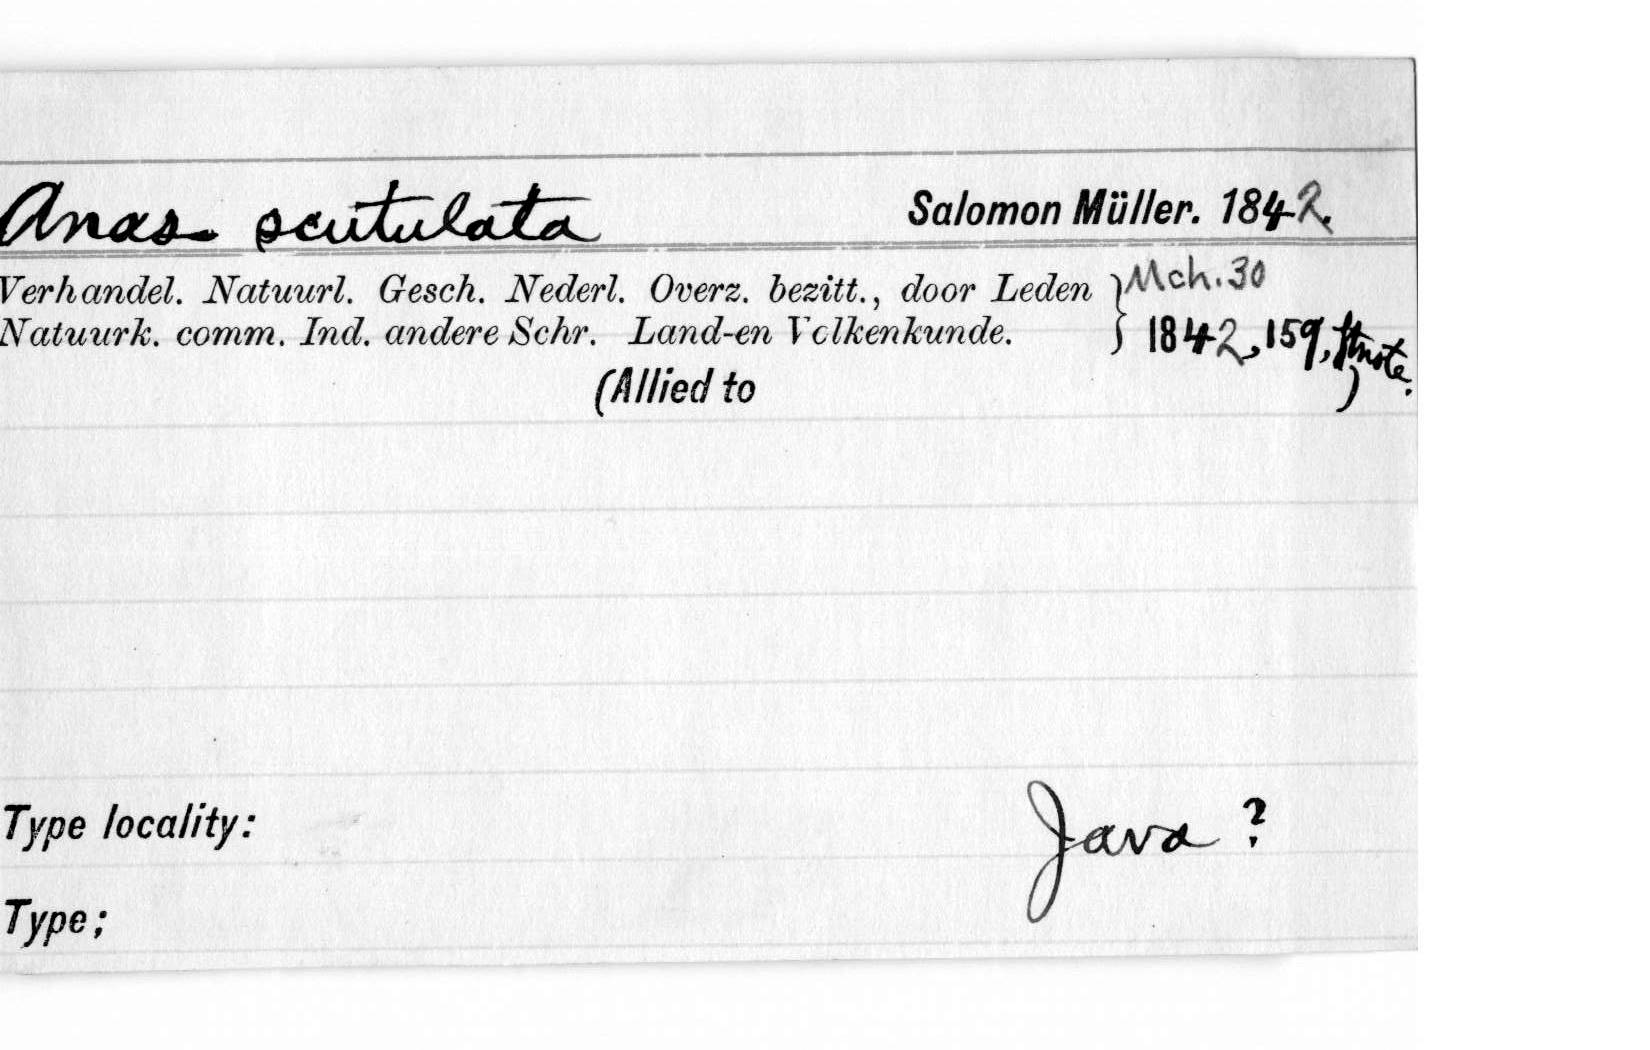 Anas scutulata Salomon Müller. 1842.
Verhandel. Natuurl. Gesch. Nederl. Overz. bezitt., door Leden } Mch. 30
Natuurk. comm. Ind. andere Schr. Land-en Volkenkunde. } 1842, 159, ftnote.
(Allied to )
Type locality: Java ?
Type;